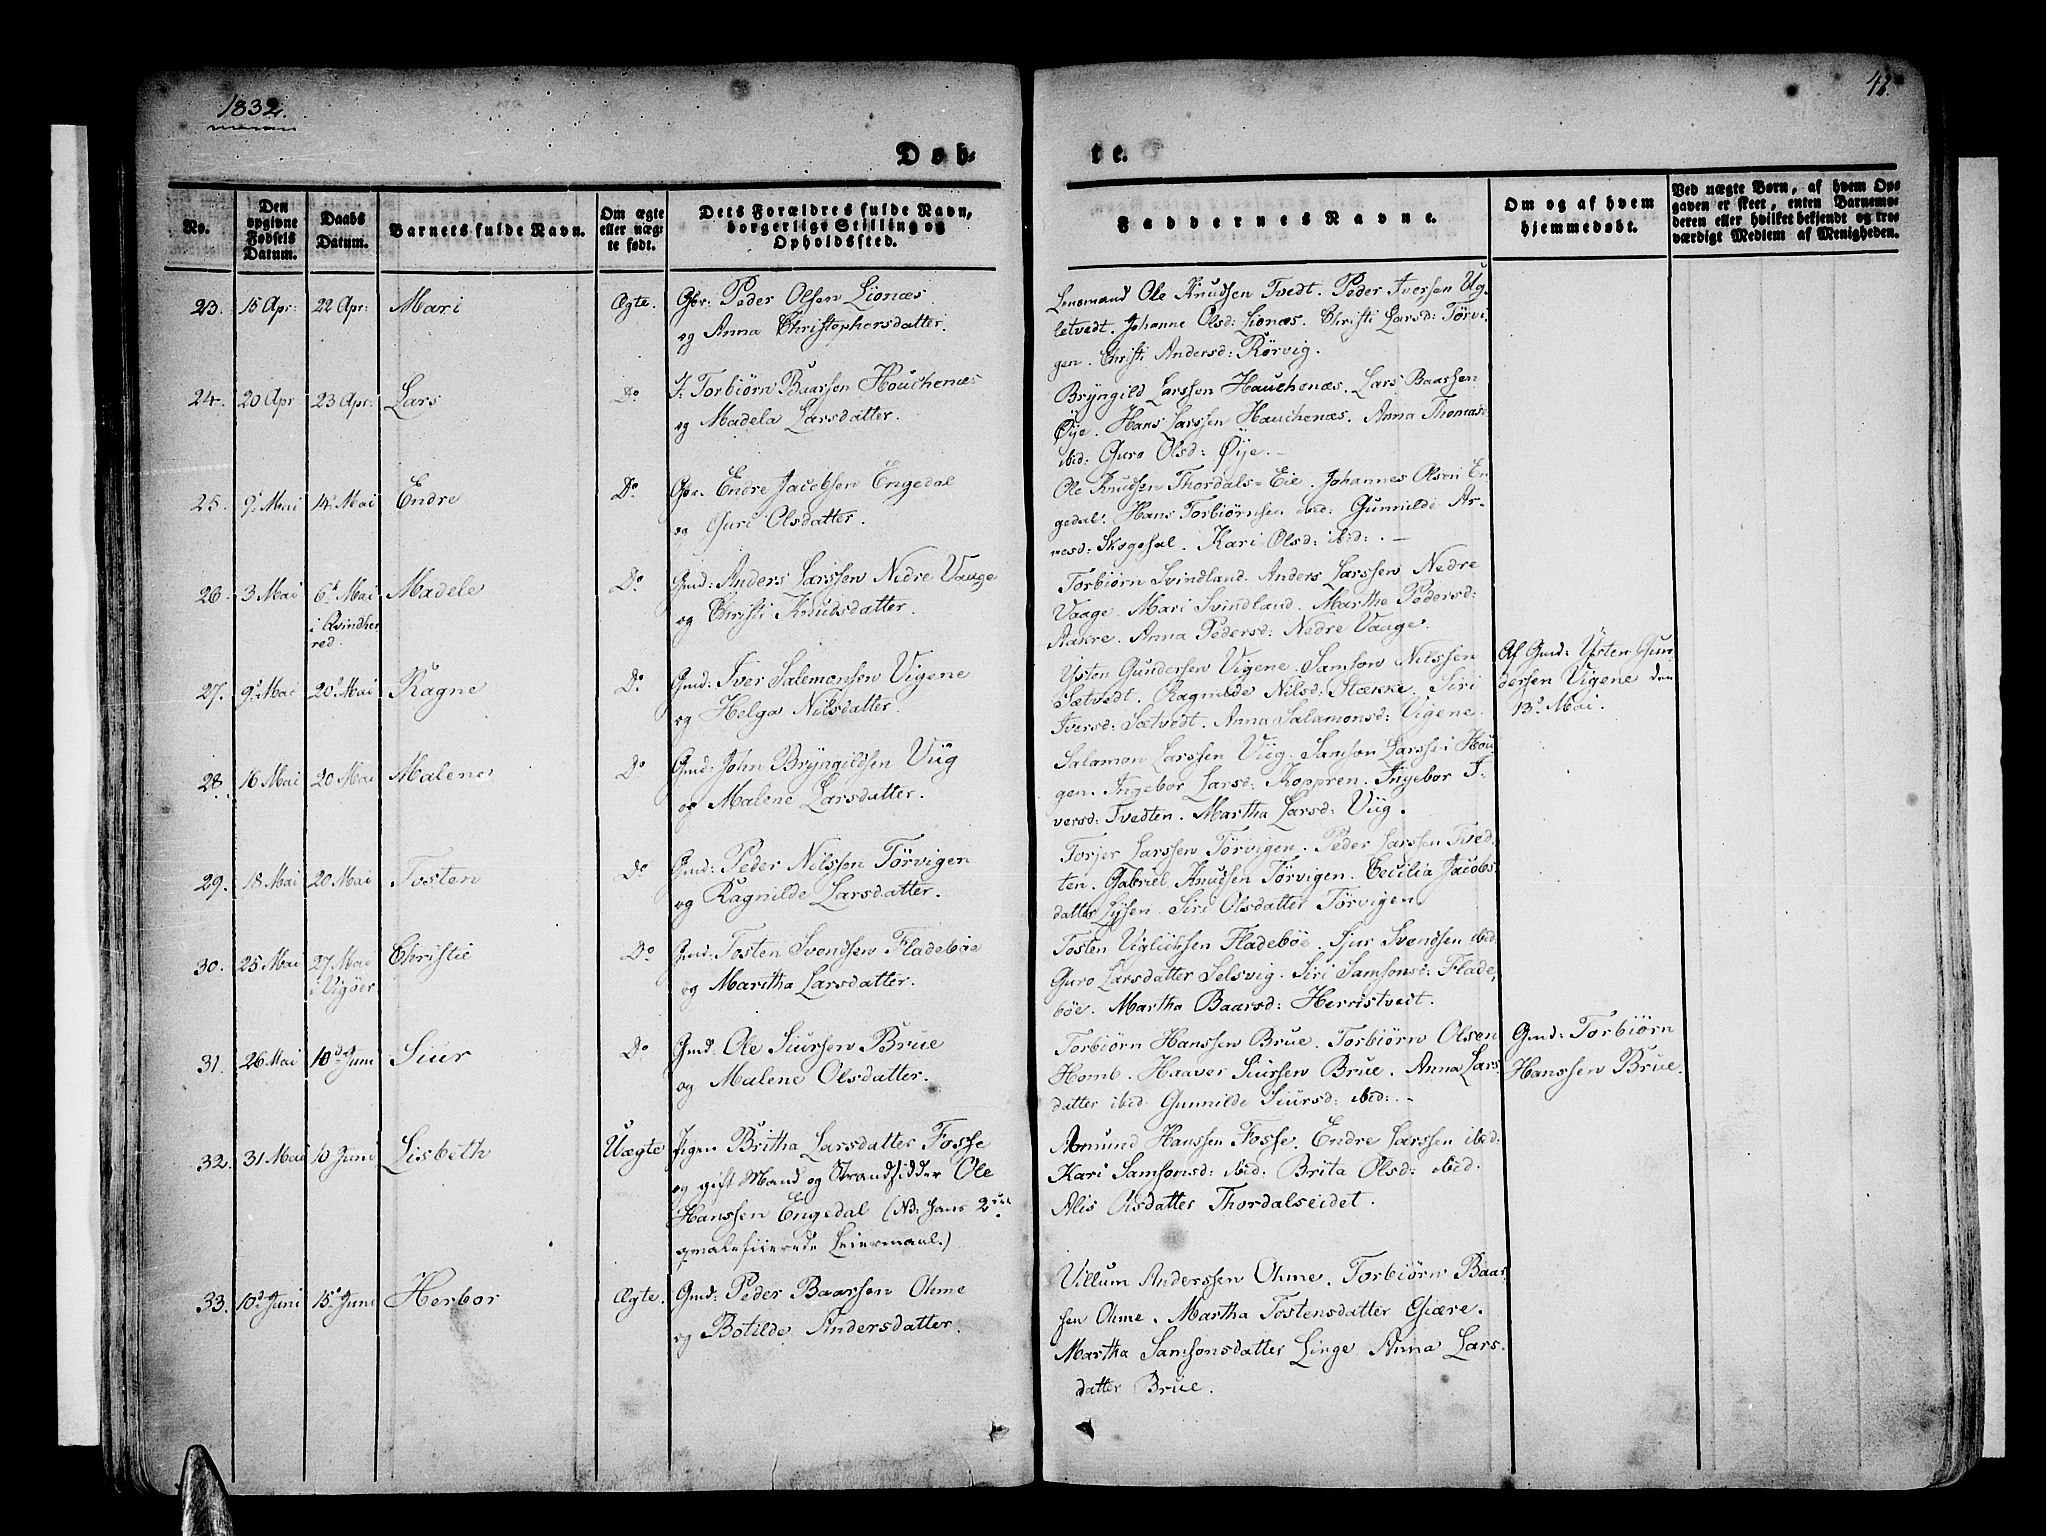 1832.
42.
Døb-
te.
No.
Den opgivne Fødsels Datum.
Daabs Datum.
Barnets fulde Navn.
Om ægte eller uæg- te født.
Dets Forældres fulde Navn, borgerlige Stilling og Opholdssted.
Faddernes Navne.
Om og af hvem hjemmedøbt.
Ved uægte Børn, af hvem Op- gaven er skeet, enten Barnemo- deren eller hvilket bekjendt og tro- værdigt Medlem af Menigheden.
23. 15 Apr: 22 Apr: Mari Ægte. Gbr: Peder Olsen Lionæs
og Anna Christophersdatter.
Lensmand Ole Knudsen Tvedt. Peder Iversen Ug-
letvedt. Johanne Olsd: Lionæs. Christi Larsd: Törvi
gen. Christi Andersd: Rörvig.
24. 20 Apr 23 Apr: Lars Do Torbiörn Baarsen Houchenæs
og Madela Larsdatter.
Bryngild Larssen Hauchenæs. Lars Baarsen
Øÿe. Hans Larssen Hauchenæs. Anna Thomasd:
ibid: Guro Olsd: Øÿe.
25. 9 Mai 14 Mai Endre Do Gbr. Endre Jacobsen Engedal
og Guri Olsdatter.
Ole Knudsen Thordals=Eie. Johannes Olsen En
gedal. Hans Torbiörnsen ibid: Gunnilde Ar-
nesd: Skogesal. Kari Olsd: ibid: .
26. 3 Mai 6 Mai Madele Do Gmd: Anders Larssen Nedre Vaage
i Qvindher
red.
og Christi Knudsdatter.
Torbiörn Svindland. Anders Larssen Nedre
Vaage. Mari Svindland. Marthe Pedersd:
Aakre. Anna Pedersd: Nedre Vaage.
27. 9 Mai 20 Mai Ragne Do Gmd: Iver Salemonsen Vigene
og Helga Nilsdatter.
Ysten Gundersen Vigene. Samson Nilssen
Sætvedt. Ragnilde Nilsd: Stække. Siri
Iversd: Sætvedt. Anna Salamonsd: Vigene.
Af Gmd: Ysten Gun
dersen Vigene den
13 Mai.
28. 16 Mai 20 Mai Malene Do Gmd: John Bryngildsen Viig
og Malene Larsdatter.
Salamon Larssen Viig. Samson Larssen Hou
gen. Ingebor Larsd: Koppren. Ingebor I-
versd: Tvedten. Martha Larsd: Viig.
29. 18 Mai 20 Mai Tosten Do Gmd: Peder Nilssen Törvigen
og Ragnilde Larsdatter.
Torjer Larssen Törvigen. Peder Larssen Tved
ten. Gabriel Knudsen Törvigen. Cecilia Jacobs
datter Lysen. Siri Olsdatter Törvigen
30. 25 Mai 27 Mai Christie Do Gmd: Tosten Svendsen Fladeböe
i Vigöer
og Maritha Larsdatter.
Tosten Viglichsen Fladebøe. Sjur Svendsen ibid.
Guro Larsdatter Selsvig. Siri Samsonsd: Flade,
bøe. Martha Baarsd: Herristveit.
31. 26 Mai 10 Juni Siur Do Gmd. Ole Siursen Brue
og Malene Olsdatter.
Torbiörn Hanssen Brue. Torbiörn Olsen
Homb. Haaver Siursen Brue. Anna Lars
datter ibid Gunnilde Siursd: ibid: .
Gmd: Torbiörn
Hanssen Brue.
32. 31 Mai 10 Juni Lisbeth Uægte Pigen Britha Larsdatter Fosse
og gift Mand og Strandsidder Ole
Hanssen Engedal (NB: hans 2
qvalificerede Leiermaal.)
Amund Hanssen Fosse. Endre Larssen ibid:
Kari Samsonsd: ibid: Brita Olsd: ibid.
Alis Olsdatter Thordalseidet.
33. 10 Juni 15 Juni Herbor Ægte. Gmd: Peder Baarsen Ohme
og Botilde Andersdatter.
Villum Anderssen Ohme. Torbiörn Baar
sen Ohme. Martha Tostensdatter Giære.
Martha Samsonsdatter Linge. Anna Lars.
datter Brue.